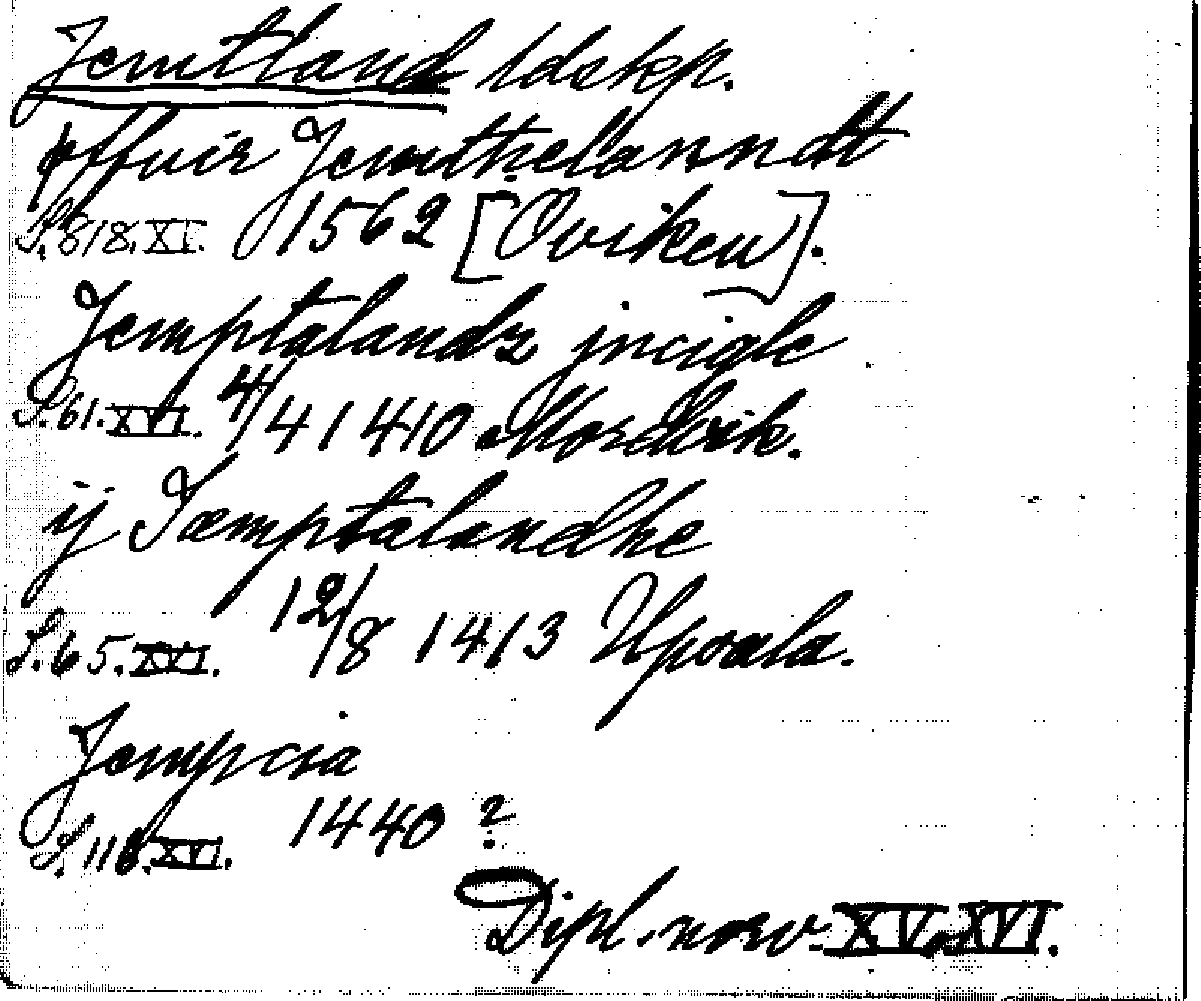 Jemtland ldskp.
offuir Jemthelanndt
S. 818. XV. 1562 [Oviken].
Jemptalandz jncigle
S. 61. XVI. 4/4 1410 Mordvik.
ij Jæmptalandhe
S. 65. XVI. 12/8 1413 Upsala.
Jempcia
S. 118. XVI. 1440 ?
Dipl. norv. XV. XVI.